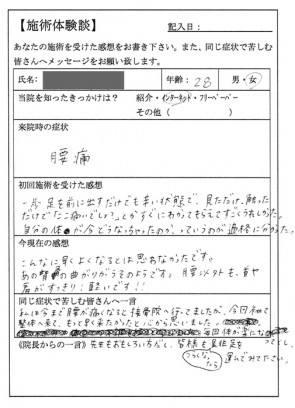 【施術体験談】 記入日：
あなたの施術を受けた感想をお書き下さい。また、同じ症状で苦しむ
皆さんへメッセージをお願い致します。
氏名： 年齢：28 男・女
当院を知ったきっかけは？ 紹介・インターネット・フリーペーパー
その他（ ）
来院時の症状
腰痛
初回施術を受けた感想
一歩足を前に出すだけでも辛い状態で、見ただけ、触った
だけで「ここ痛いでしょ？」とかすぐにわかってもらえてすごくうれしかった。
自分の体が今どうなっちゃったのか、っていうのが適格に分かった。
今現在の感想
こんなに早くよくなるとは思わなかったです。
あの背骨の曲がりがうそのようです。腰以外も、首や
肩がすっきり！軽いです！！
同じ症状で苦しむ皆さんへ一言
私は今まで腰が痛くなると接骨院へ行ってましたが、今回初めて
整体へ来て、もっと早く来たかったと心から思いました。
毎回体が楽になって
《院長からの一言》先生もおもしろい方だし、皆様も是非足を
つらくなったら 運んでみて下さい。